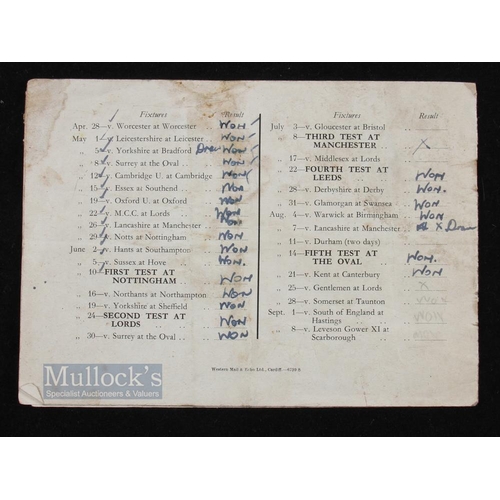 Fixtures Result
Apr. 28—v. Worcester at Worcester .. WON
May 1—v. Leicestershire at Leicester .. WON
„ 5—v. Yorkshire at Bradford Draw WON
„ 8—v. Surrey at the Oval .. .. WON
„ 12—v. Cambridge U. at Cambridge WON
„ 15—v. Essex at Southend .. WON
„ 19—v. Oxford U. at Oxford .. WON
„ 22—v. M.C.C. at Lords .. WON
„ 26—v. Lancashire at Manchester .. WON
„ 29—v. Notts at Nottingham .. WON
June 2—v. Hants at Southampton .. WON
„ 5—v. Sussex at Hove .. WON.
10—FIRST TEST AT
NOTTINGHAM .. WON
„ 16—v. Northants at Northampton WON
„ 19—v. Yorkshire at Sheffield .. WON
„ 24—SECOND TEST AT
LORDS .. .. WON
„ 30—v. Surrey at the Oval .. .. WON
Fixtures Result
July 3—v. Gloucester at Bristol ..
„ 8—THIRD TEST AT
MANCHESTER .. X
„ 17—v. Middlesex at Lords ..
„ 22—FOURTH TEST AT
LEEDS .. .. WON
„ 28—v. Derbyshire at Derby .. WON.
„ 31—v. Glamorgan at Swansea .. WON
Aug. 4—v. Warwick at Birmingham .. WON
„ 7—v. Lancashire at Manchester .. X Draw
„ 11—v. Durham (two days) ..
„ 14—FIFTH TEST AT
THE OVAL .. WON.
„ 21—v. Kent at Canterbury .. WON
„ 25—v. Gentlemen at Lords .. X
„ 28—v. Somerset at Taunton ..
Sept. 1—v. South of England at
Hastings .. .. WON
„ 8—v. Leveson Gower XI at
Scarborough ..
Western Mail & Echo Ltd., Cardiff.
Mullock's
Specialist Auctioneers & Valuers